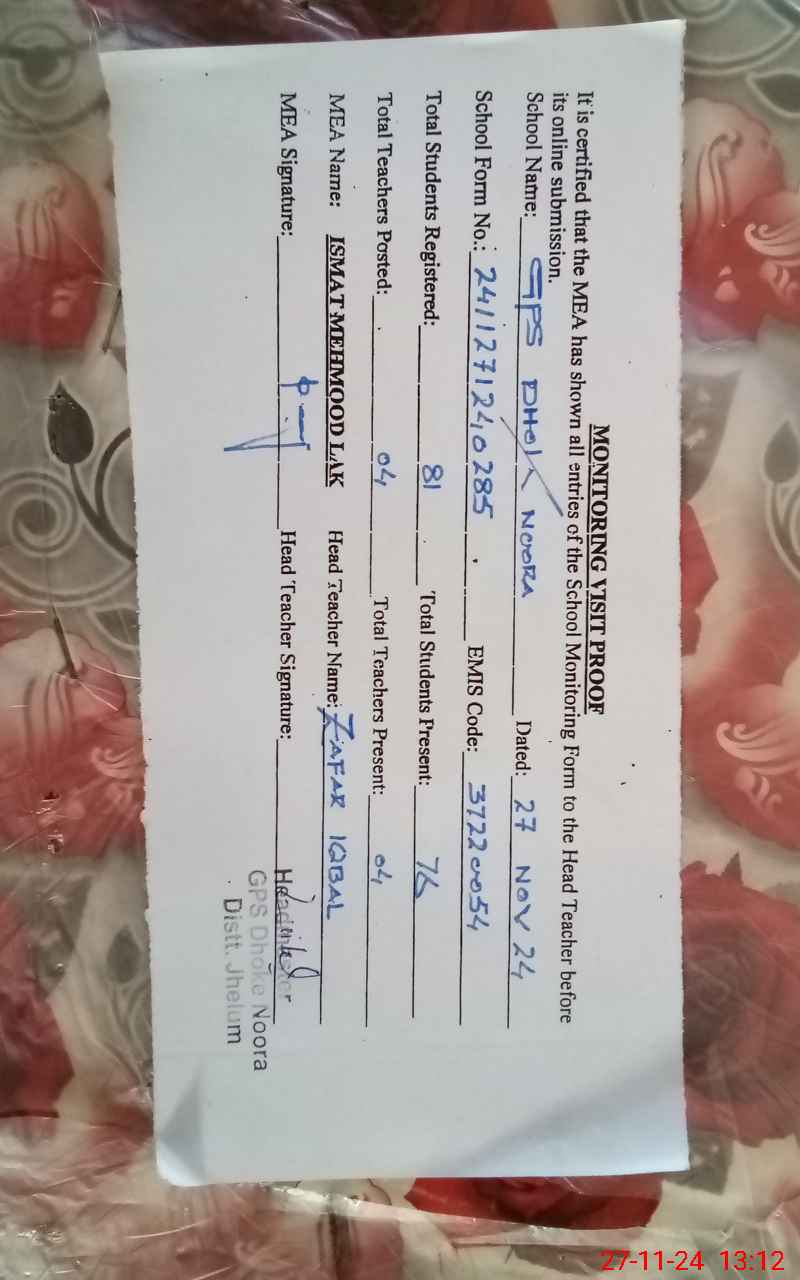 MONITORING VISIT PROOF
It is certified that the MEA has shown all entries of the School Monitoring Form to the Head Teacher before
its online submission.
School Name: GPS DHOK NOORA Dated: 27 NOV 24
School Form No.: 2411271240285 EMIS Code: 37220054
Total Students Registered: 81 Total Students Present: 76
Total Teachers Posted: 04 Total Teachers Present: 04
MEA Name: ISMAT MEHMOOD LAK Head Teacher Name: ZAFAR IQBAL
MEA Signature: Head Teacher Signature:
Headmaster
GPS Dhoke Noora
Distt. Jhelum
27-11-24 13:12